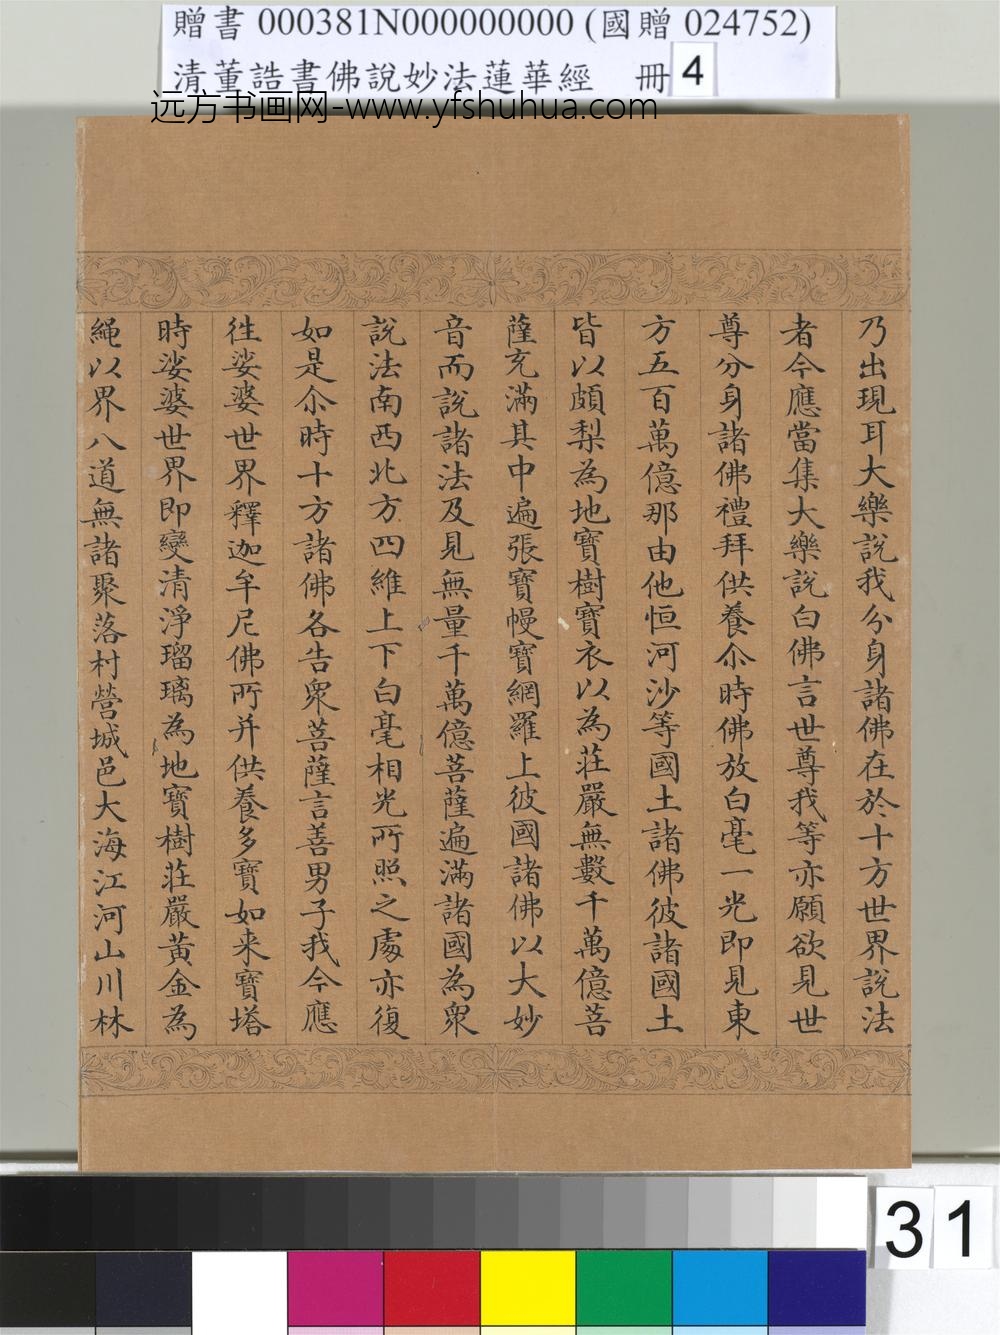 贈書 000381N000000000 (國贈 024752)
清董誥書佛說妙法蓮華經 冊 4
远方书画网-www.yfshuhua.com
乃出現耳大樂說我分身諸佛在於十方世界說法
者今應當集大樂說白佛言世尊我等亦願欲見世
尊分身諸佛禮拜供養尒時佛放白毫一光即見東
方五百萬億那由他恒河沙等國土諸佛彼諸國土
皆以頗梨為地寶樹寶衣以為莊嚴無數千萬億菩
薩充滿其中遍張寶幔寶網羅上彼國諸佛以大妙
音而說諸法及見無量千萬億菩薩遍滿諸國為眾
說法南西北方四維上下白毫相光所照之處亦復
如是尒時十方諸佛各告眾菩薩言善男子我今應
往娑婆世界釋迦牟尼佛所并供養多寶如来寶塔
時娑婆世界即變清淨瑠璃為地寶樹莊嚴黃金為
繩以界八道無諸聚落村營城邑大海江河山川林
31